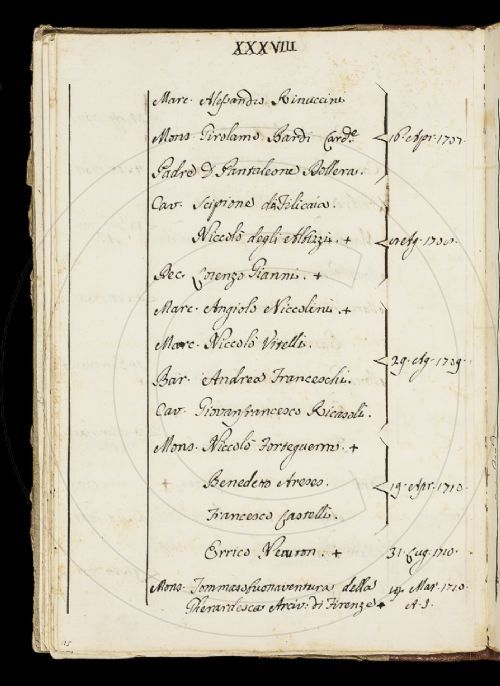 XXXVIII
Marc. Alessandro Rinuccini
Mons. Girolamo Bardi Card.e 16. Apr. 1707.
Padre D. Pantaleone Dollera.
Cav. Scipione da Filicaia.
Niccolò degli Albizi. + Ag. 1708.
Dec. Lorenzo Gianni. +
Marc. Angiolo Niccolini. +
Marc. Niccolò Vitelli. 29. Ag. 1709.
Bar. Andrea Franceschi.
Cav. Giovanfrancesco Ricasoli.
Mons. Niccolò Forteguerri. +
Benedeto Areseo. 19. Apr. 1710.
Francesco Castelli.
Errico Neuton. + 31. Lug. 1710.
Mons. Tommaso Buonaventura della 19. Mar. 1710.
Gherardesca Arciv. di Firenze + A. I.
15